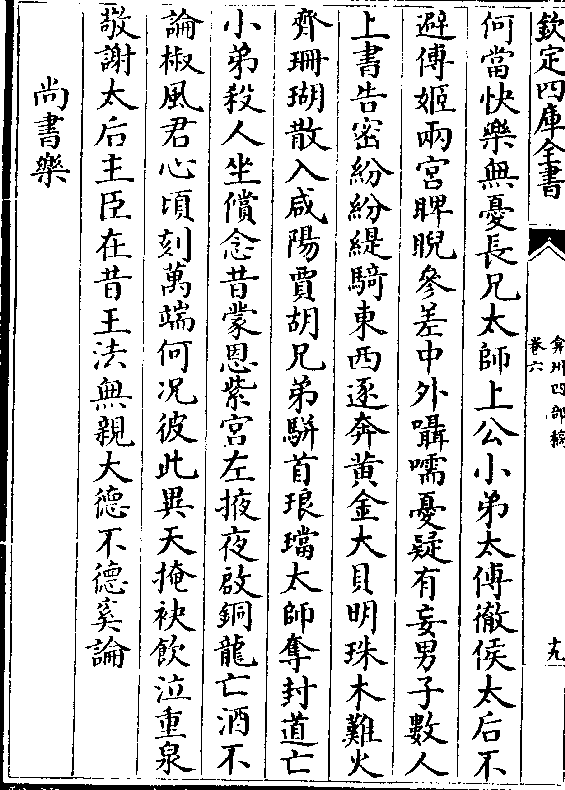 欽定四庫全書
弇州四部稿
卷六
十九
何當快樂無憂長兄太師上公小弟太傅徹侯太后不
避傅姬兩宮睥睨參差中外囁嚅憂疑有妄男子數人
上書告密紛紛緹騎東西逐奔黃金大貝明珠木難火
齊珊瑚散入咸陽賈胡兄弟駢首琅璫太師奪封道亡
小弟殺人坐償念昔蒙恩紫宮左掖夜啟銅龍亡酒不
論椒風君心頃刻萬端何况彼此異天掩袂飲泣重泉
敬謝太后主臣在昔王法無親大德不德奚論
尚書樂